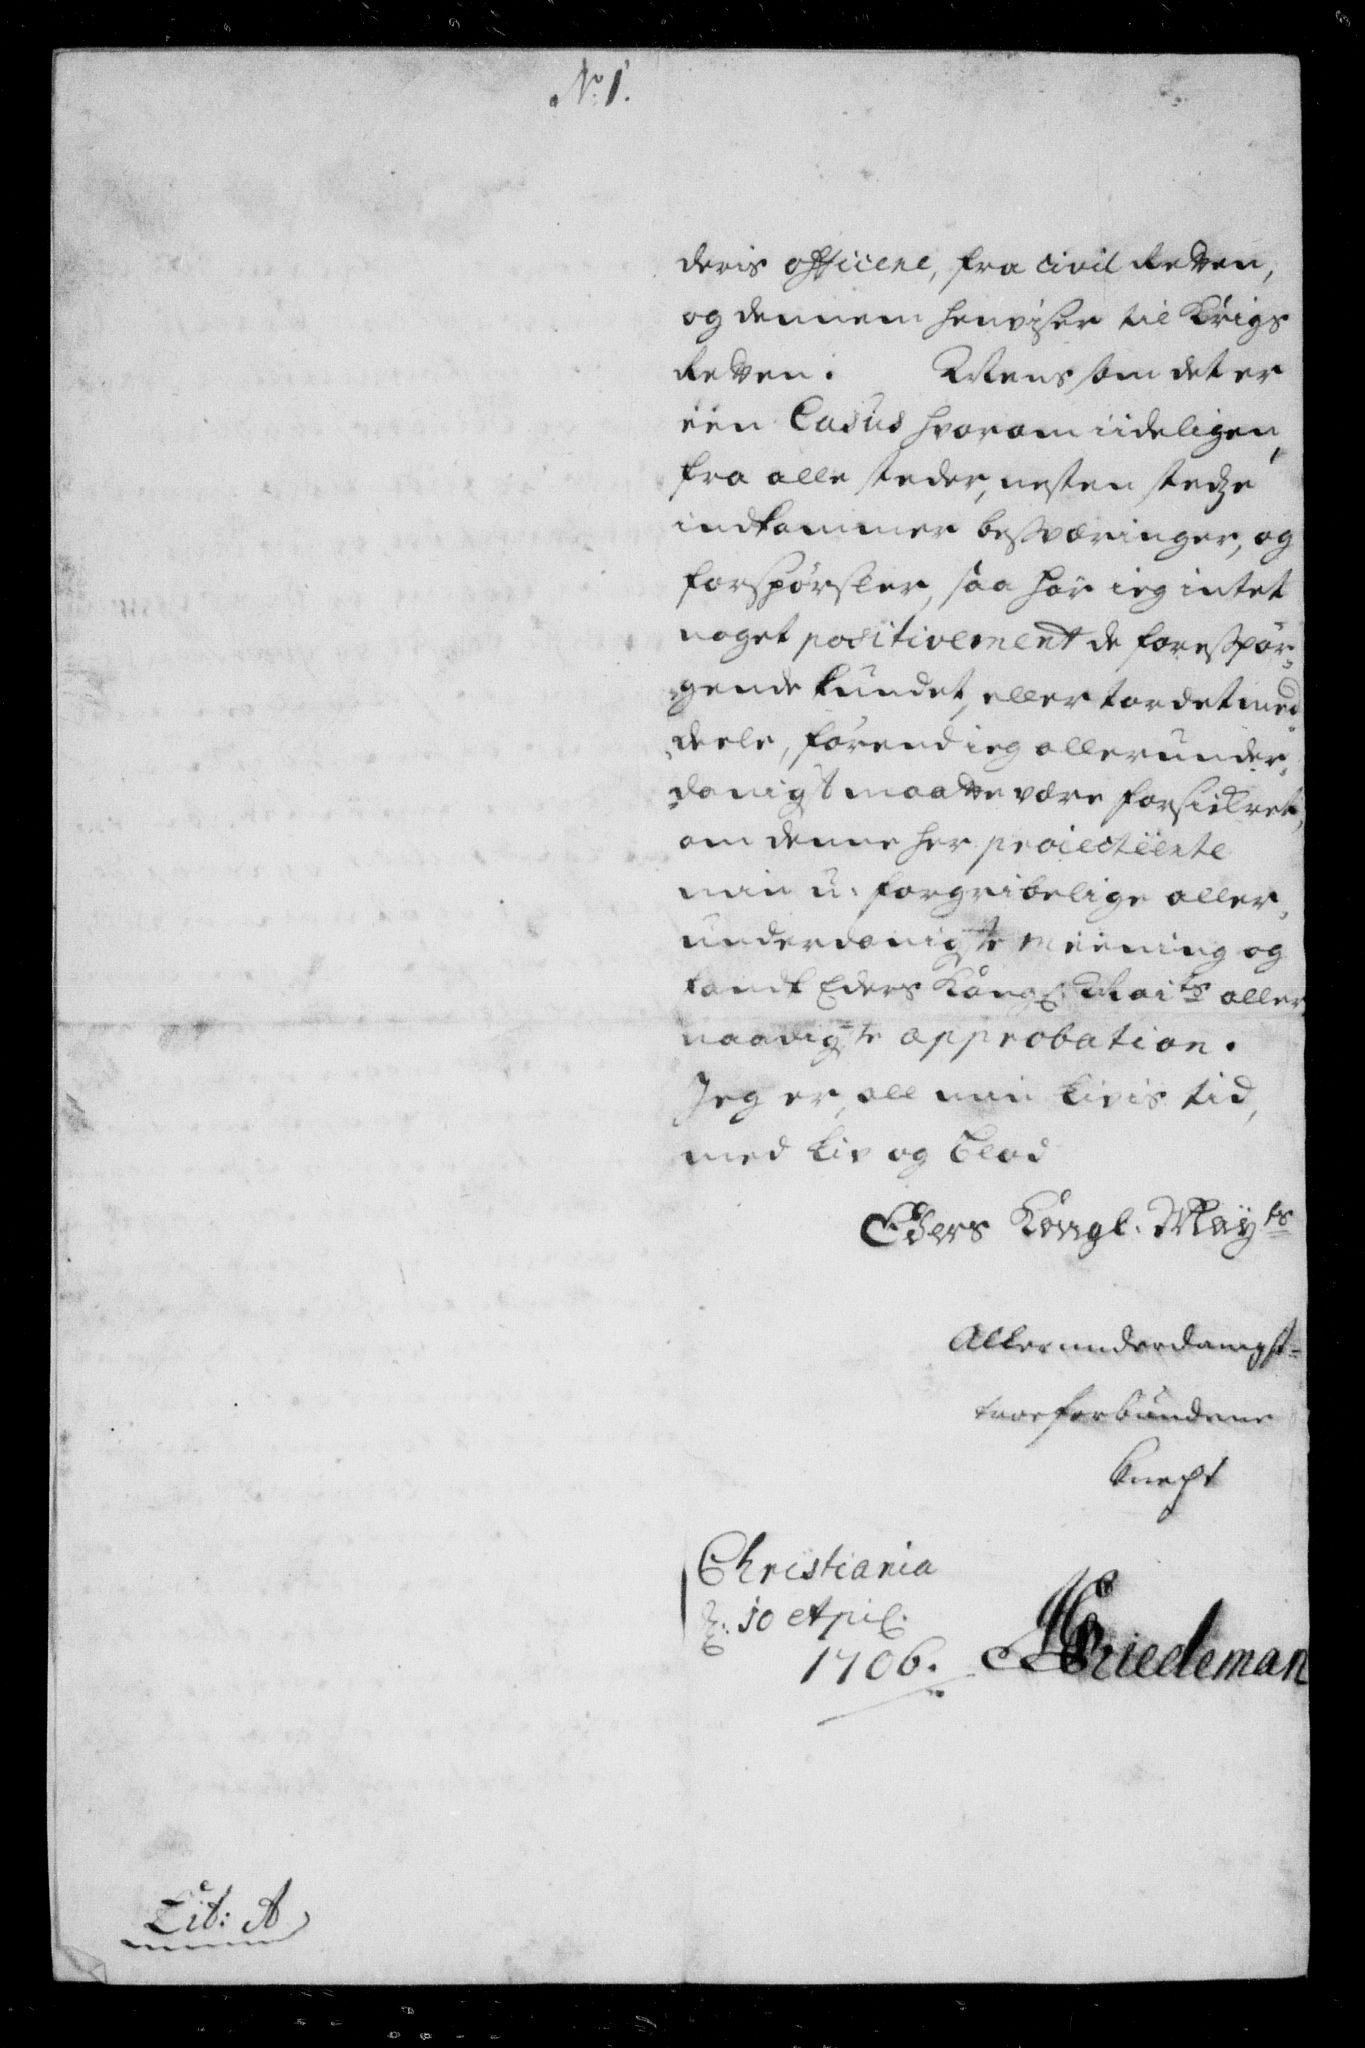 No 1.
deris officerer, fra Civil Retten,
og dennem henviser til Krigs
Retten. Mens som det er
een Casus hvorom iideligen,
fra alle steder, nesten stedze
indkommer besværinger, og
forspørsler, saa har ieg intet
noget positivement de forespør-
gende kundet, eller tordet med-
deele, førend ieg allerunder-
danigst maatte være forsickret,
om denne her projecteerte
min u-forgribelige aller-
underdanigste meening og
fandt Eders Kongl: Maits aller
naadigste approbation.
Jeg er, all min Livis tid,
med Liv og Blod
Eders Kongl. Mayts
Allerunderdanigst-
troeforbundene
Knecht
Christiania
d: 10 April:
1706.
Friedeman
Lit: A